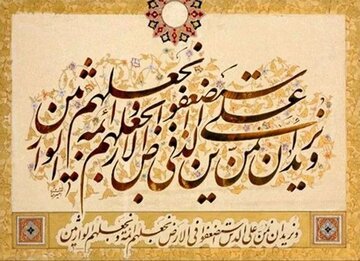 و نرید ان نمن علی الذین استضعفوا فی الارض و نجعلهم ائمة و نجعلهم الوارثین
و نرید ان نمن علی الذین استضعفوا فی الارض و نجعلهم ائمة و نجعلهم الوارثین